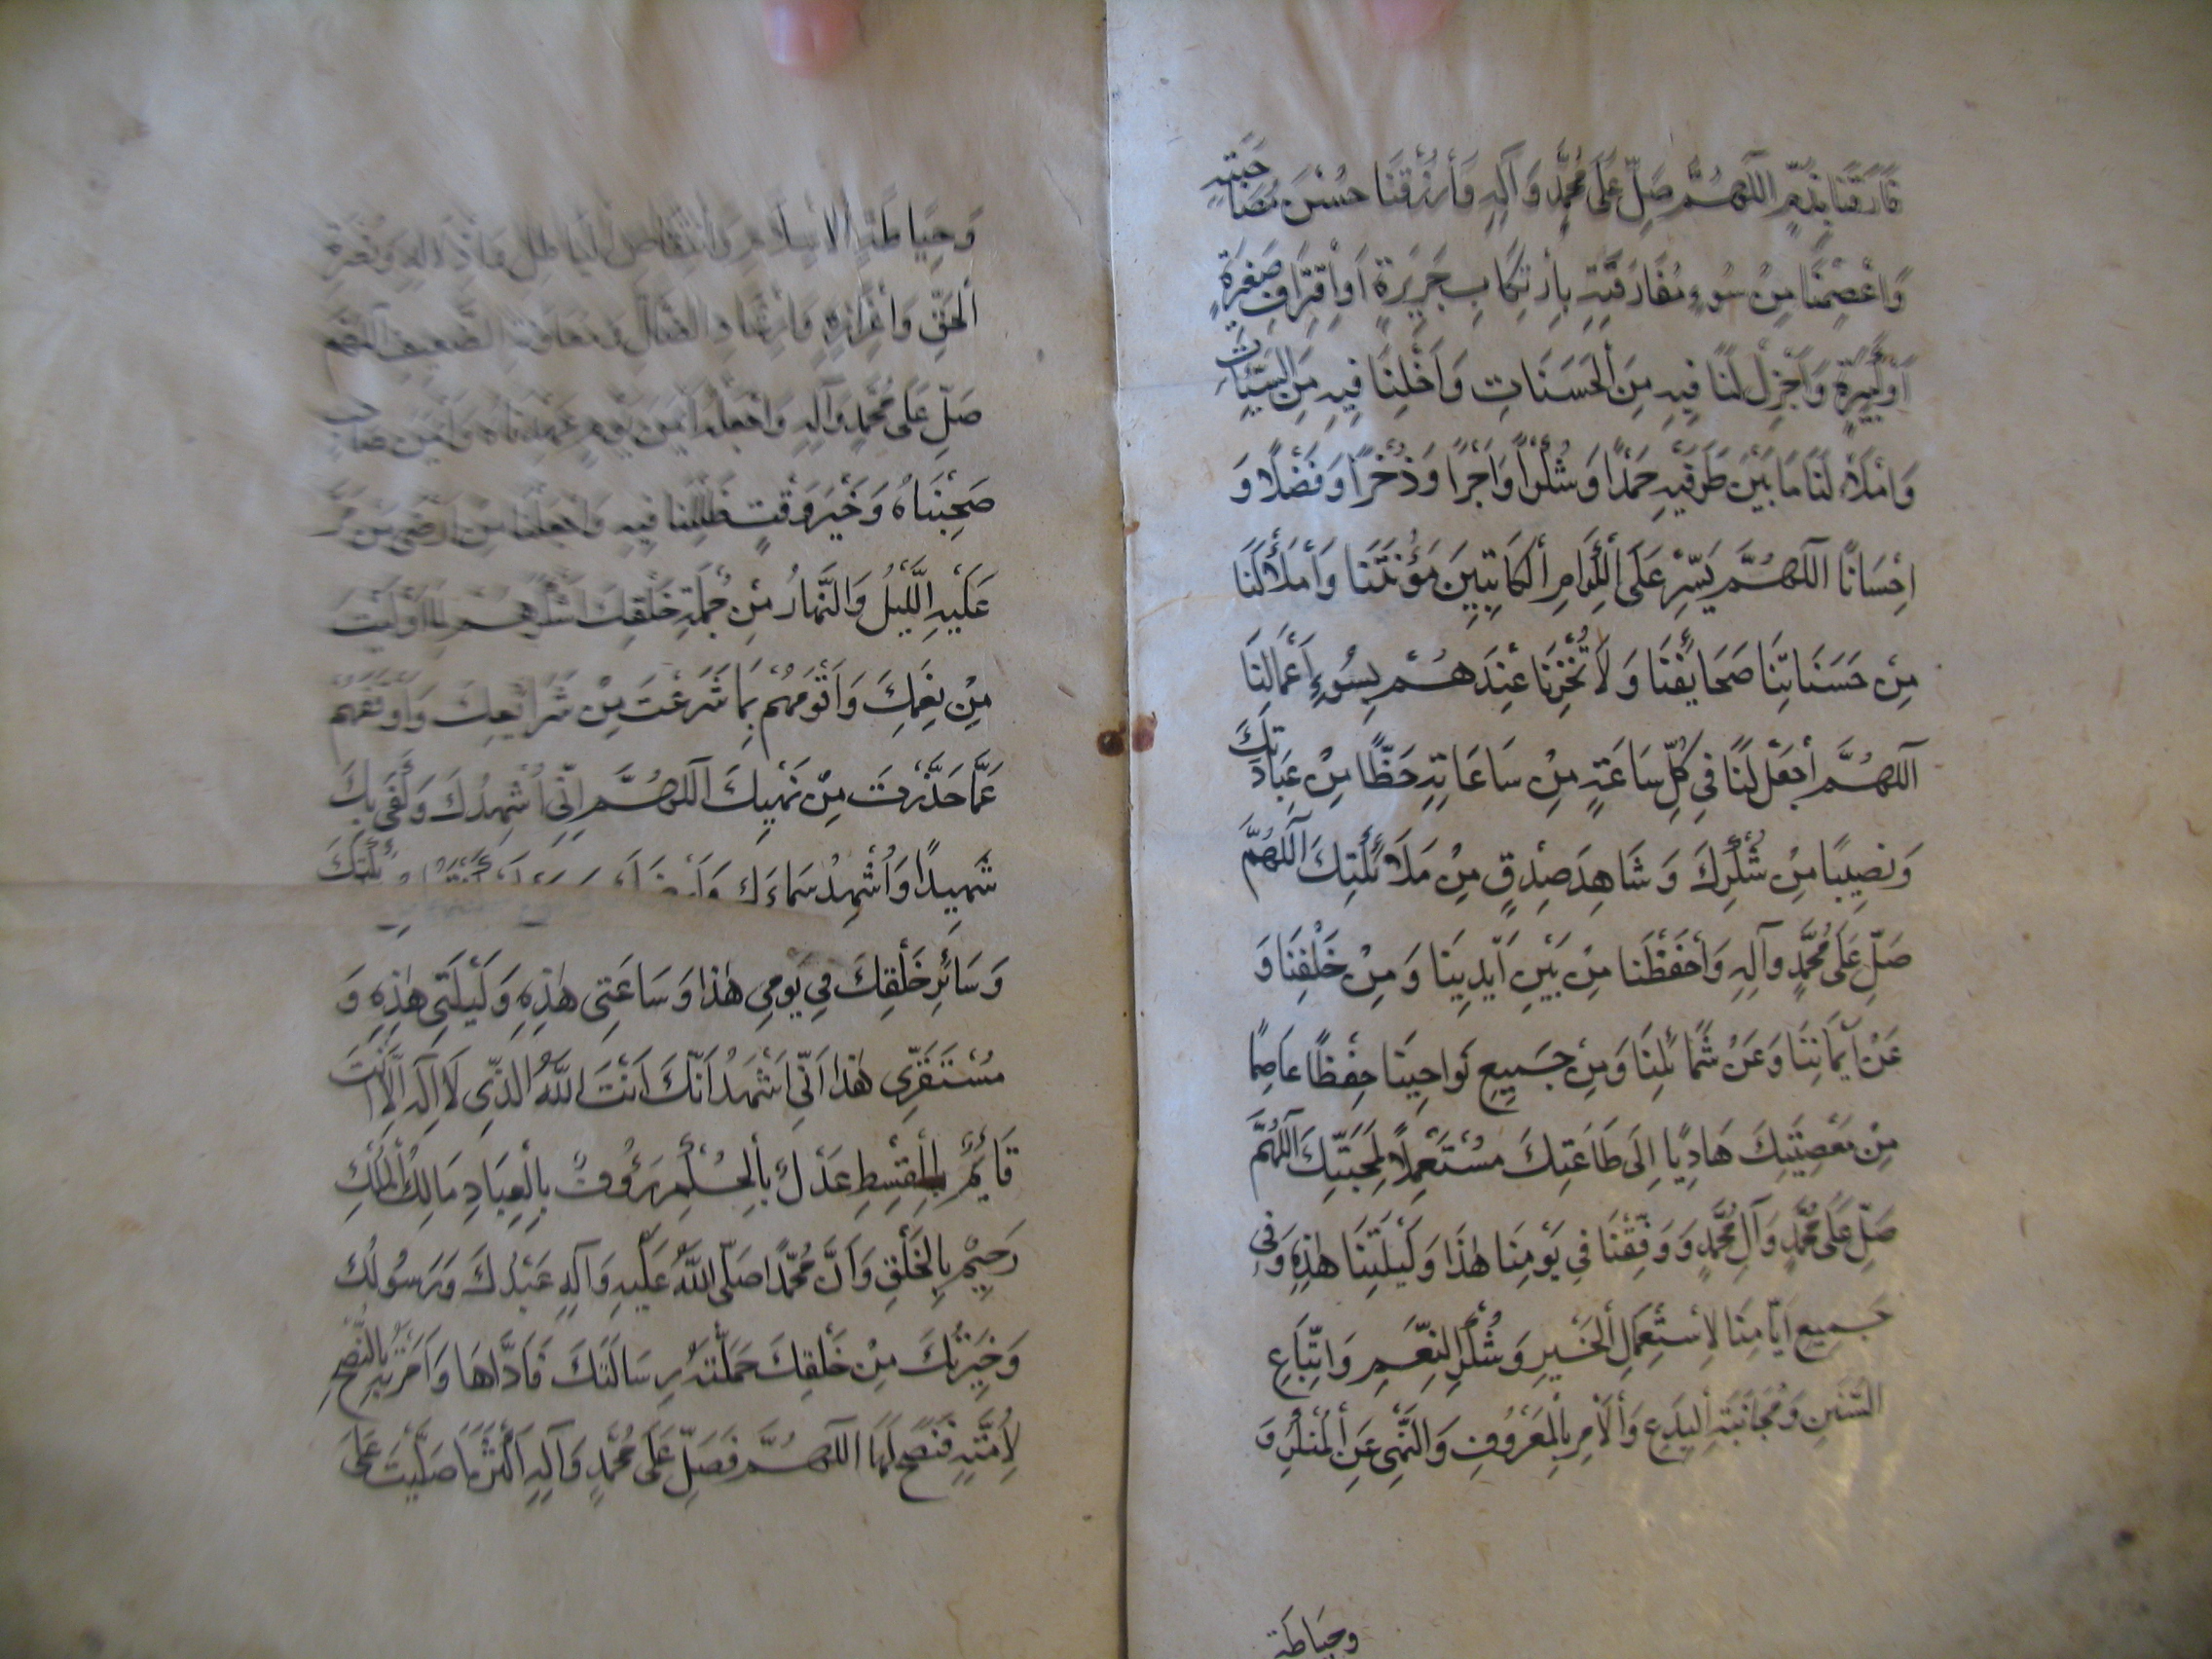 فَارَقَنَا بِذَمٍّ اَللّٰهُمَّ صَلِّ عَلَى مُحَمَّدٍ وَآلِهِ وَارْزُقْنَا حُسْنَ مُصَاحَبَتِهِ
وَاعْصِمْنَا مِنْ سُوءِ مُفَارَقَتِهِ بِارْتِكَابِ جَرِيرَةٍ اَوِ اقْتِرَافِ صَغِيرَةٍ
اَوْ كَبِيرَةٍ وَاَجْزِلْ لَنَا فِيهِ مِنَ الْحَسَنَاتِ وَاَخْلِنَا فِيهِ مِنَ السَّيِّئَاتِ
وَامْلَأْ لَنَا مَا بَيْنَ طَرَفَيْهِ حَمْدًا وَشُكْرًا وَاَجْرًا وَذُخْرًا وَفَضْلًا وَ
اِحْسَانًا اَللّٰهُمَّ يَسِّرْ عَلَى الْكِرَامِ الْكَاتِبِينَ مَؤُنَتَنَا وَامْلَأْ لَنَا
مِنْ حَسَنَاتِنَا صَحَائِفَنَا وَلَا تُخْزِنَا عِنْدَهُمْ بِسُوءِ اَعْمَالِنَا
اَللّٰهُمَّ اجْعَلْ لَنَا فِي كُلِّ سَاعَةٍ مِنْ سَاعَاتِهِ حَظًّا مِنْ عِبَادَتِكَ
وَنَصِيبًا مِنْ شُكْرِكَ وَشَاهِدَ صِدْقٍ مِنْ مَلَائِكَتِكَ اَللّٰهُمَّ
صَلِّ عَلَى مُحَمَّدٍ وَآلِهِ وَاحْفَظْنَا مِنْ بَيْنِ اَيْدِينَا وَمِنْ خَلْفِنَا وَ
عَنْ اَيْمَانِنَا وَعَنْ شَمَائِلِنَا وَمِنْ جَمِيعِ نَوَاحِينَا حِفْظًا عَاصِمًا
مِنْ مَعْصِيَتِكَ هَادِيًا اِلَى طَاعَتِكَ مُسْتَعْمِلًا لِمَحَبَّتِكَ اَللّٰهُمَّ
صَلِّ عَلَى مُحَمَّدٍ وَآلِ مُحَمَّدٍ وَوَفِّقْنَا فِي يَوْمِنَا هٰذَا وَلَيْلَتِنَا هٰذِهِ وَفِي
جَمِيعِ اَيَّامِنَا لِاسْتِعْمَلِ الْخَيْرِ وَشُكْرِ النِّعَمِ وَاتِّبَاعِ
السُّنَنِ وَمُجَانَبَةِ الْبِدَعِ وَالْاَمْرِ بِالْمَعْرُوفِ وَالنَّهْيِ عَنِ الْمُنْكَرِ وَ
وحِيَاطَةِ
وَحِيَاطَةِ الْاِسْلَامِ وَانْتِقَاصِ الْبَاطِلِ وَاِذْلَالِهِ وَنُصْرَةِ
الْحَقِّ وَاِعْزَازِهِ وَاِرْشَادِ الضَّالِّ وَمُعَاوَنَةِ الضَّعِيفِ اَللّٰهُمَّ
صَلِّ عَلَى مُحَمَّدٍ وَآلِهِ وَاجْعَلْهُ اَيْمَنَ يَوْمٍ عَهِدْنَاهُ وَاَيْمَنَ صَاحِبٍ
صَحِبْنَاهُ وَخَيْرَ وَقْتٍ ظَلِلْنَا فِيهِ وَاجْعَلْنَا مِنْ اَرْضَى مَنْ مَرَّ
عَلَيْهِ اللَّيْلُ وَالنَّهَارُ مِنْ جُمْلَةِ خَلْقِكَ اَشْكَرَهُمْ لِمَا اَوْلَيْتَ
مِنْ نِعَمِكَ وَاَقْوَمَهُمْ بِمَا شَرَعْتَ مِنْ شَرَائِعِكَ وَاَوْقَفَهُمْ
عَمَّا حَذَّرْتَ مِنْ نَهْيِكَ اَللّٰهُمَّ اِنِّي اُشْهِدُكَ وَكَفَى بِكَ
شَهِيدًا وَاُشْهِدُ سَمَاءَكَ وَاَرْضَكَ
وَسَائِرِ خَلْقِكَ فِي يَوْمِي هٰذَا وَسَاعَتِي هٰذِهِ وَلَيْلَتِي هٰذِهِ وَ
مُسْتَقَرِّي هٰذَا اَنِّي اَشْهَدُ اَنَّكَ اَنْتَ اللّٰهُ الَّذِي لَا اِلٰهَ اِلَّا اَنْتَ
قَائِمٌ بِالْقِسْطِ عَدْلٌ بِالْحُكْمِ رَؤُوفٌ بِالْعِبَادِ مَالِكُ الْمُلْكِ
رَحِيمٌ بِالْخَلْقِ وَاَنَّ مُحَمَّدًا صَلَّى اللّٰهُ عَلَيْهِ وَآلِهِ عَبْدُكَ وَرَسُولُكَ
وَخِيَرَتُكَ مِنْ خَلْقِكَ حَمَلْتَهُ رِسَالَتَكَ فَاَدَّاهَا وَاَمَرْتَهُ بِالنُّصْحِ
لِاُمَّتِهِ فَنَصَحَ لَهَا اَللّٰهُمَّ فَصَلِّ عَلَى مُحَمَّدٍ وَآلِهِ اَكْثَرَ مَا صَلَّيْتَ عَلَى